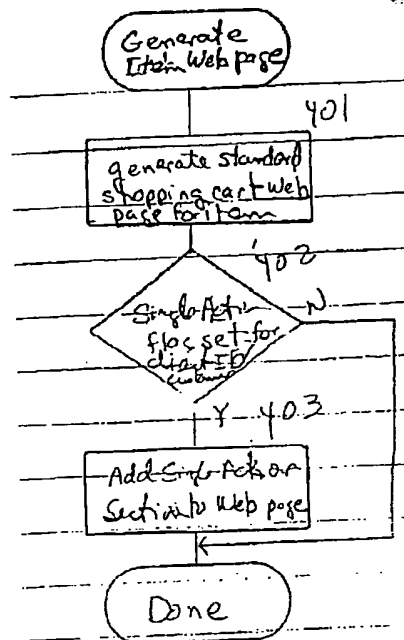 Generate
Item Web page
401
generate standard
shopping cart Web
page for item
402
Single-Action
N
flag set for
client ID
customer
Y 403
Add Single-Action
Section to Web page
Done